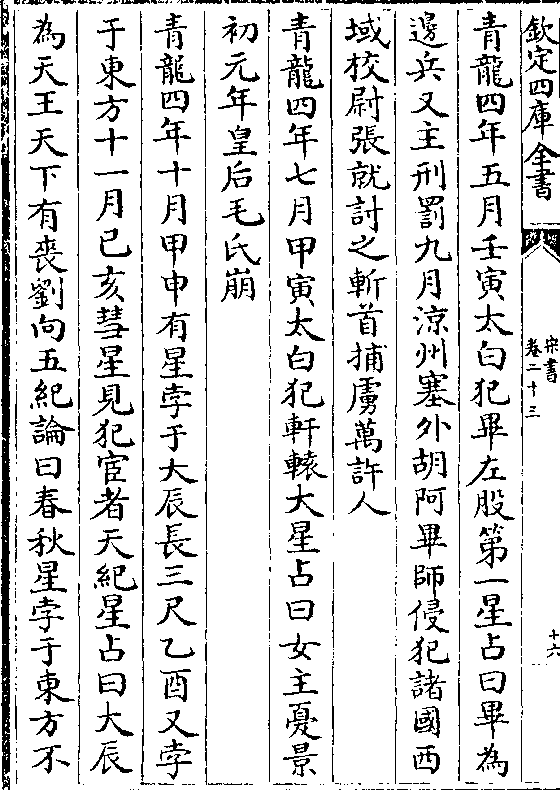 欽定四庫全書
宋書
卷二十三
十六
青龍四年五月壬寅太白犯畢左股第一星占曰畢為
邊兵又主刑罰九月涼州塞外胡阿畢師侵犯諸國西
域校尉張就討之斬首捕虜萬許人
青龍四年七月甲寅太白犯軒轅大星占曰女主憂景
初元年皇后毛氏崩
青龍四年十月甲申有星孛于大辰長三尺乙酉又孛
于東方十一月己亥彗星見犯宦者天紀星占曰大辰
為天王天下有喪劉向五紀論曰春秋星孛于東方不